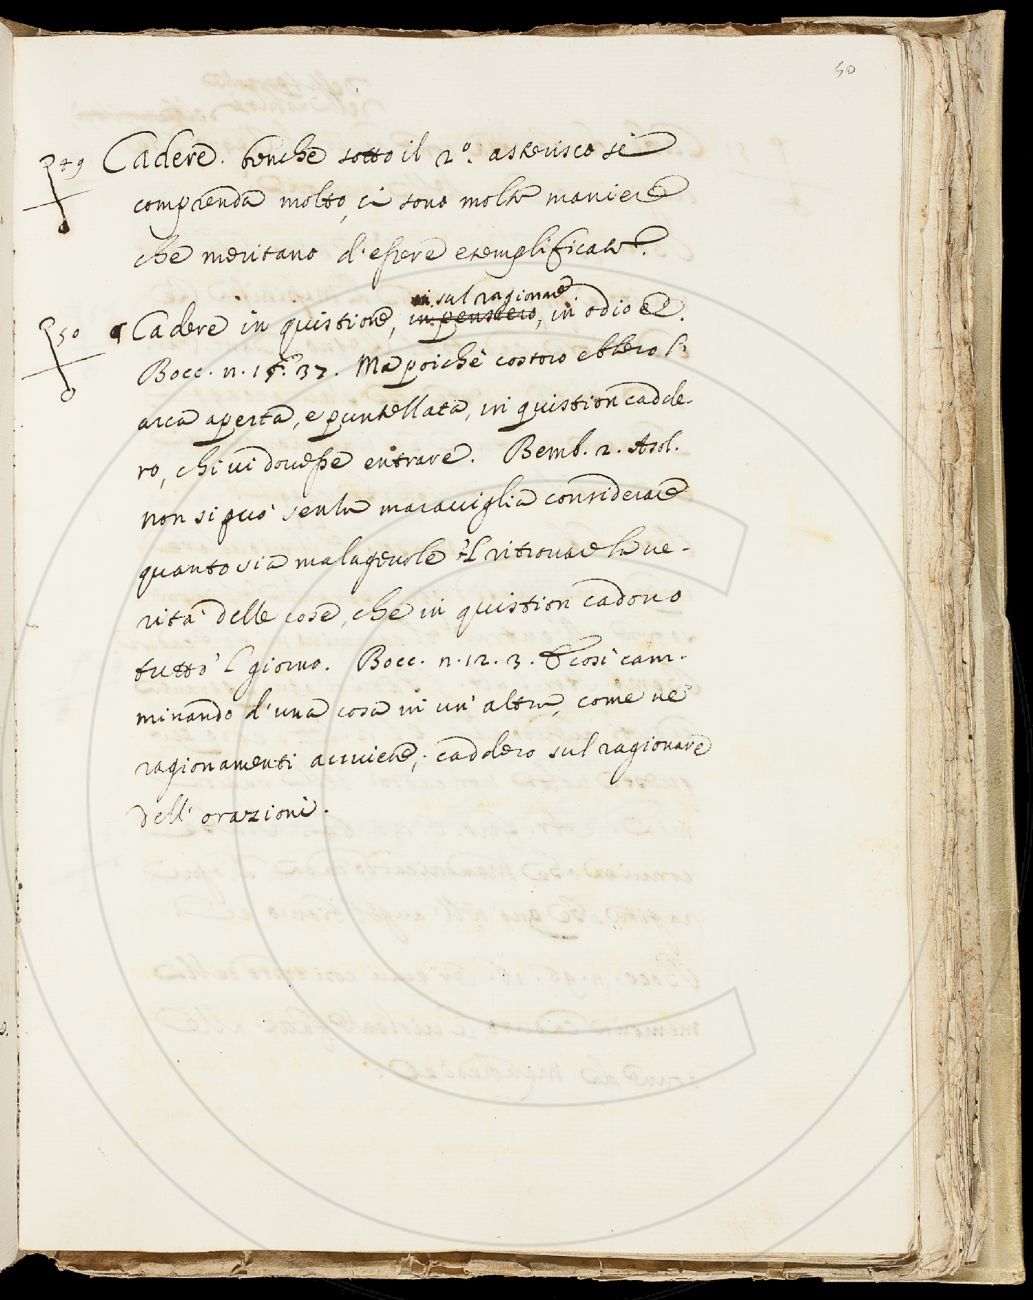 50
49 Cadere. benche sotto il 2°. asterisco si
comprenda molto, ci sono molte maniere
che meritano d'essere esemplificate.
sul ragionare
50 Cadere in quistione, in pensiero, in odio ec.
Bocc. n. 15. 37. Ma poiche costoro ebbero l'
arca aperta, e puntellata, in quistion cadde-
ro, chi vi dovesse entrare. Bemb. 2. Asol.
non si può senza maraviglia considerare
quanto sia malagevole il ritrovare la ve-
rità delle cose, che in quistion cadono
tutto 'l giorno. Bocc. n. 12. 3. E così cam-
minando d'una cosa in un'altra, come ne'
ragionamenti avviene, caddero sul ragionare
dell'orazioni.